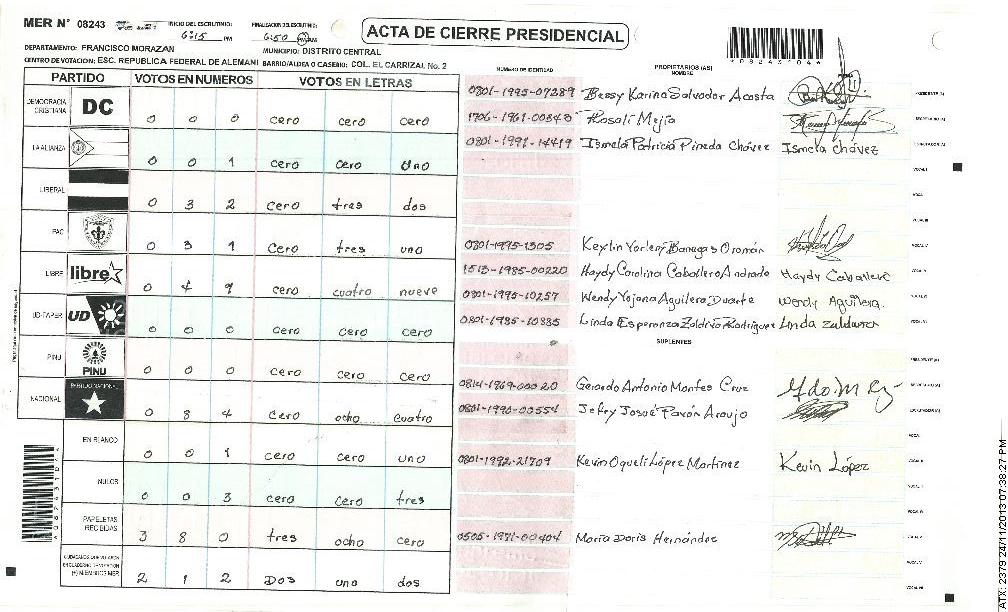 MER N° 08243 INICIO DEL ESCRUTINIO: 6:15 PM FINALIZACION DEL ESCRUTINIO: 6:50 PM
ACTA DE CIERRE PRESIDENCIAL
*08243104*
DEPARTAMENTO: FRANCISCO MORAZAN MUNICIPIO: DISTRITO CENTRAL
CENTRO DE VOTACION: ESC. REPUBLICA FEDERAL DE ALEMANI BARRIO/ALDEA O CASERIO: COL. EL CARRIZAL No. 2
PARTIDO VOTOS EN NUMEROS VOTOS EN LETRAS
DEMOCRACIA CRISTIANA DC 0 0 0 cero cero cero
LA ALIANZA 0 0 1 cero cero uno
LIBERAL 0 3 2 cero tres dos
PAC 0 3 1 cero tres uno
LIBRE libre 0 4 9 cero cuatro nueve
UD-FAPER UD 0 0 0 cero cero cero
PINU PINU 0 0 0 cero cero cero
NACIONAL PARTIDO NACIONAL 0 8 4 cero ocho cuatro
EN BLANCO 0 0 1 cero cero uno
NULOS 0 0 3 cero cero tres
PAPELETAS RECIBIDAS 3 8 0 tres ocho cero
CIUDADANOS QUE VOTARON EN CUADERNO DE VOTACION (+) MIEMBROS MER 2 1 2 Dos uno dos
NUMERO DE IDENTIDAD PROPIETARIOS (AS) NOMBRE
0801-1995-07289 Bessy Karina Salvador Acosta PRESIDENTE (A)
1706-1961-00848 Rosali Mejia SECRETARIO (A)
0801-1991-14419 Ismela Patricia Pineda Chávez Ismela chávez ESCRUTADOR (A)
VOCAL I
VOCAL II
VOCAL III
0801-1995-1305 Keylin Yorleny Banegas Oromán VOCAL IV
1513-1985-00220 Haydy Carolina Caballero Andrade Haydy Caballero VOCAL V
0801-1995-10257 Wendy Yojana Aguilera Duarte Wendy Aguilera. VOCAL VI
0801-1985-10885 Linda Esperanza Zaldivar Rodriguez Linda zaldivar VOCAL VII
SUPLENTES
PRESIDENTE (A)
0814-1969-00020 Gerardo Antonio Montes Cruz SECRETARIO (A)
0801-1990-00554 Jefry Josué Pavón Araujo ESCRUTADOR (A)
VOCAL I
0801-1992-21709 Kevin Oqueli López Martinez Kevin López VOCAL II
VOCAL III
VOCAL IV
0505-1971-00404 Maria Doris Hernández VOCAL V
VOCAL VI
VOCAL VII
ATX: 2379 24/11/2013 07:38:27 PM